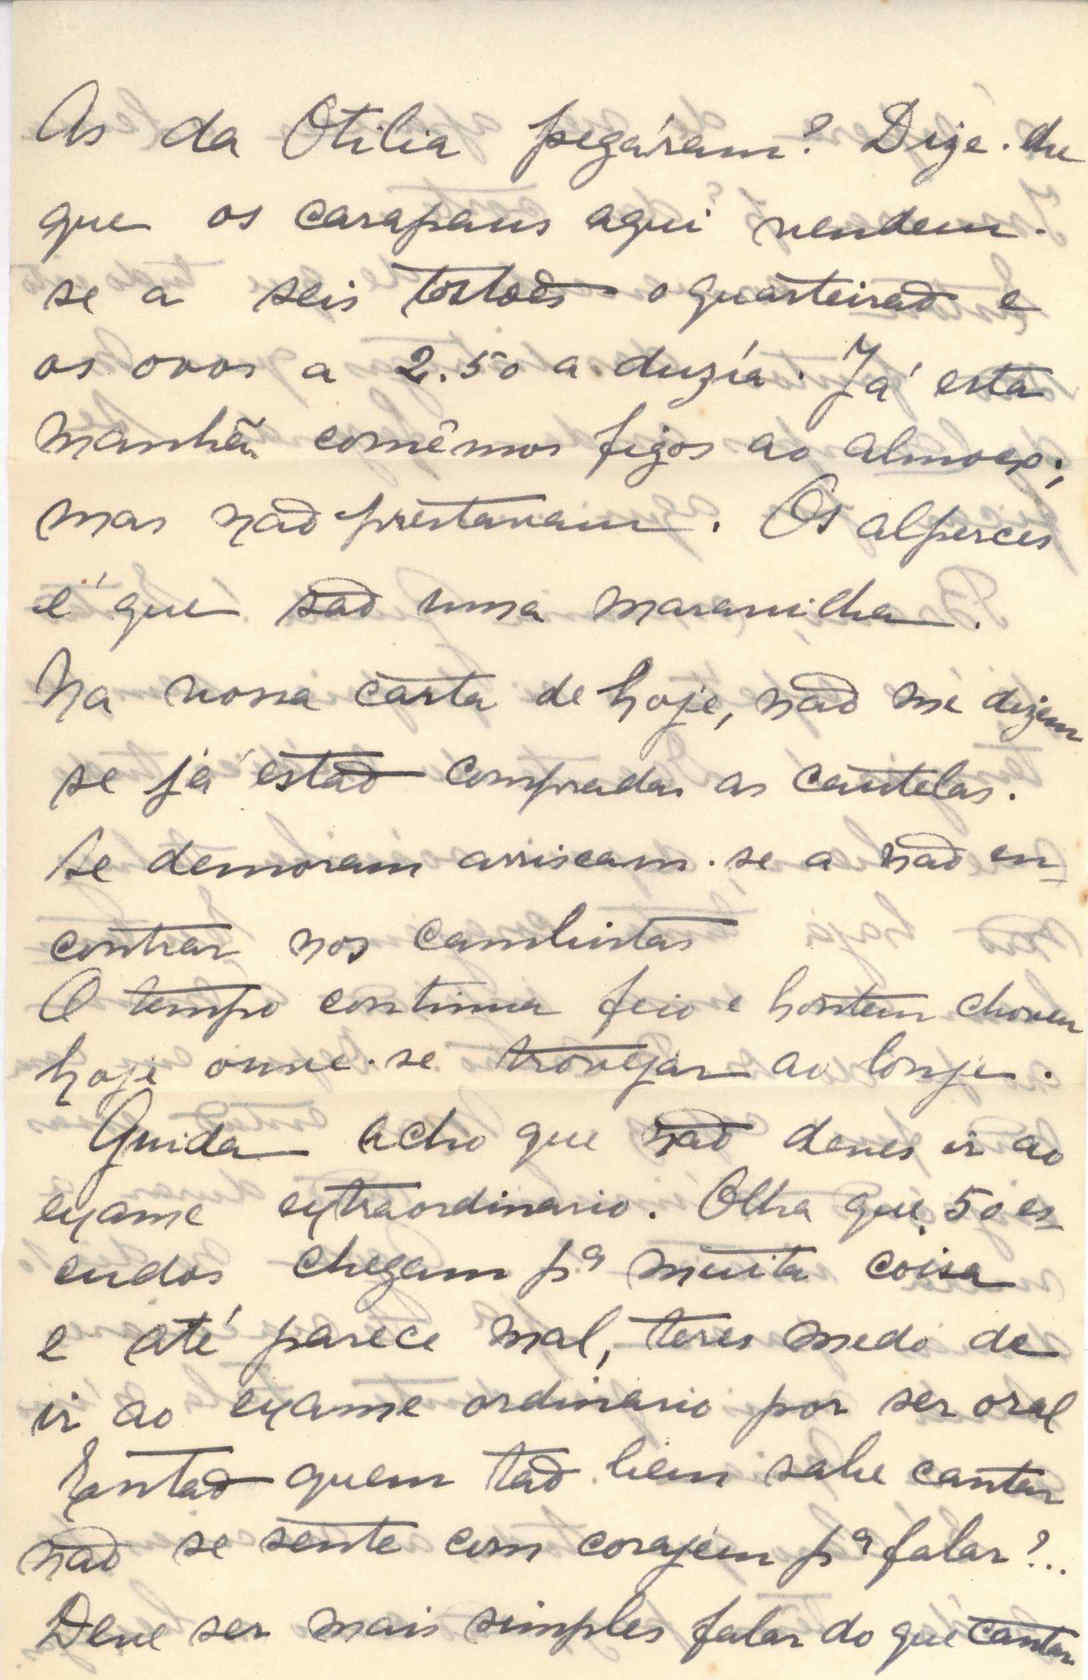 As da Otilia pegáram? Dize-lhe
que os carapaus aqui vendem-
se a seis tostoẽs o quarteiraõ e
os ovos a 2.50 a duzía. Já esta
manhã comêmos figos ao almoço;
mas naõ prestavam. Os alperces
é que saõ uma maravilha.
Na vossa carta de hoje, naõ me dizem
se já estaõ compradas as cautelas.
Se demoram arriscam-se a naõ en-
contrar nos cambistas
O tempo continua feio e hontem choveu
hoje ouve-se trovejar ao longe.
Guida acho que naõ deves ir ao
exame extraordinario. Olha que 50 es-
cudos chegam pª muita coisa
e até parece mal, teres medo de
ir ao exame ordinario por ser oral
Entaõ quem taõ bem sabe cantar
naõ se sente com corajem pª falar?..
Deve ser mais simples falar do que cantar.